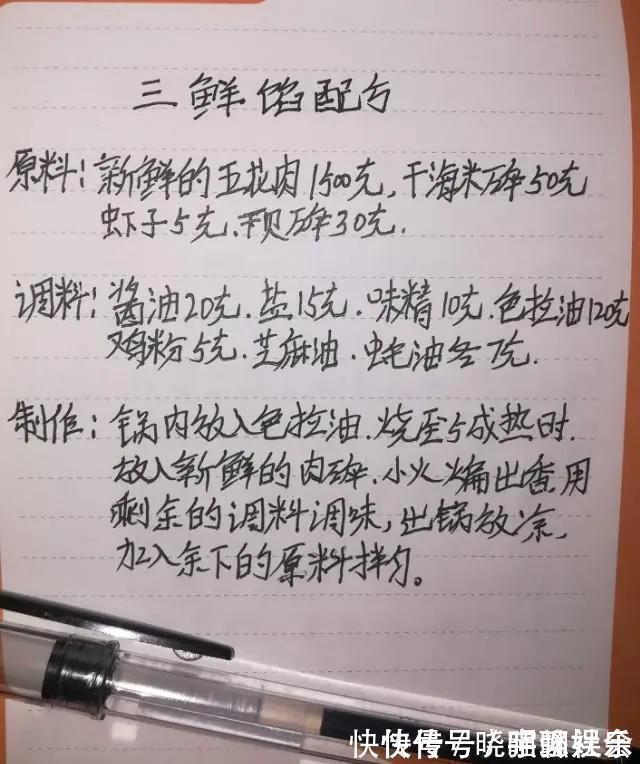 三鲜馅配方
原料：新鲜的五花肉1500克，干海米碎50克
虾子5克、干贝碎30克.
调料：酱油20克.盐15克.味精10克.色拉油120克
鸡粉5克.芝麻油.蚝油各7克.
制作：锅内放入色拉油.烧至5成热时.
放入新鲜的肉碎.小火煸出香用
剩余的调料调味，出锅放凉，
加入余下的原料拌匀。
快传号